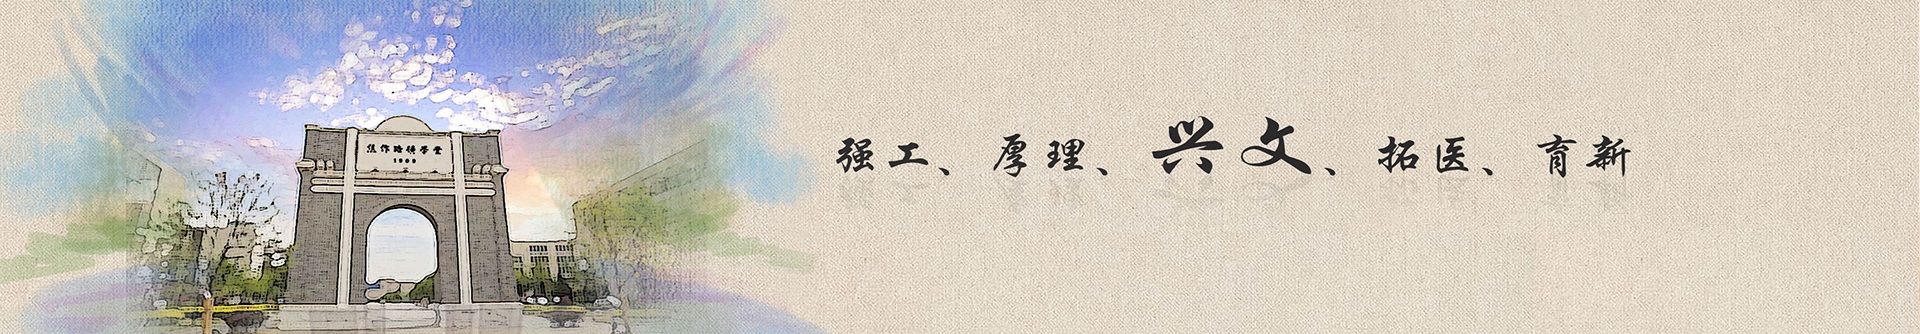 焦作路矿学堂
1909
强工、厚理、兴文、拓医、育新